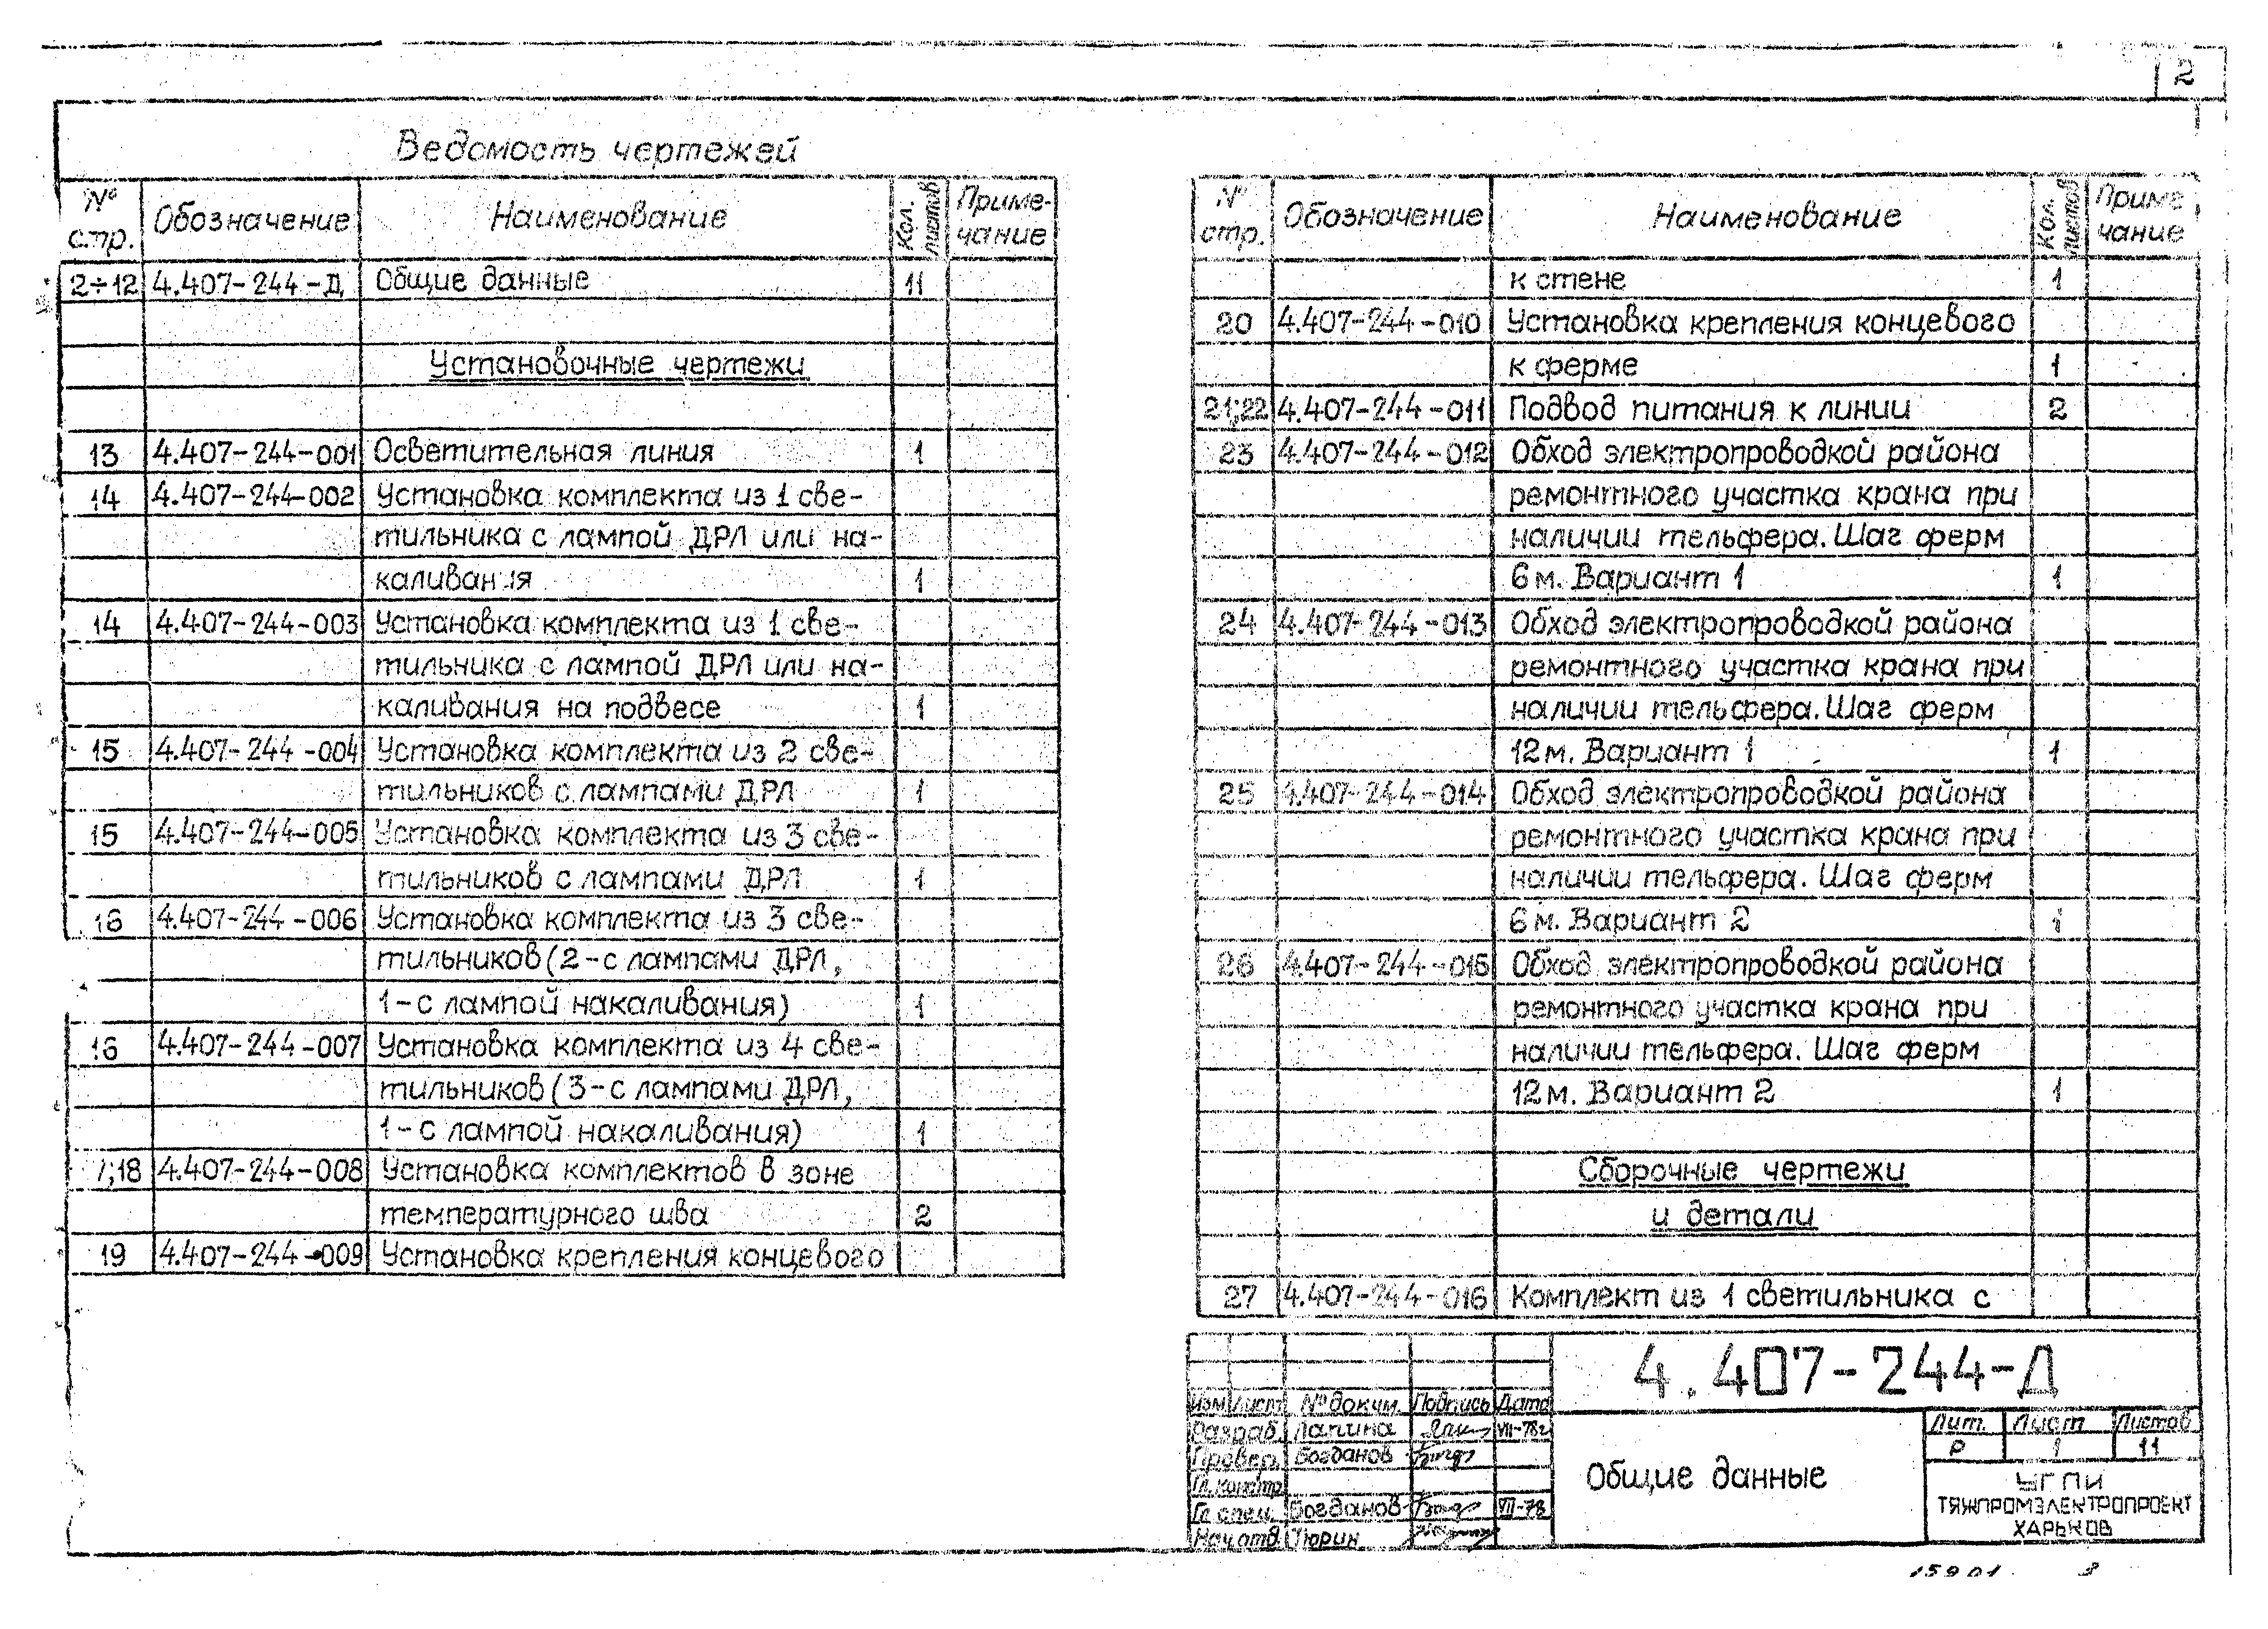 2
Ведомость чертежей
№ стр. Обозначение Наименование Кол. листов Приме-чание
2÷12 4.407-244-Д Общие данные 11
Установочные чертежи
13 4.407-244-001 Осветительная линия 1
14 4.407-244-002 Установка комплекта из 1 све-
тильника с лампой ДРЛ или на-
каливания 1
14 4.407-244-003 Установка комплекта из 1 све-
тильника с лампой ДРЛ или на-
каливания на подвесе 1
15 4.407-244-004 Установка комплекта из 2 све-
тильников с лампами ДРЛ 1
15 4.407-244-005 Установка комплекта из 3 све-
тильников с лампами ДРЛ 1
16 4.407-244-006 Установка комплекта из 3 све-
тильников (2-с лампами ДРЛ,
1-с лампой накаливания) 1
16 4.407-244-007 Установка комплекта из 4 све-
тильников (3-с лампами ДРЛ,
1-с лампой накаливания) 1
7;18 4.407-244-008 Установка комплектов в зоне
температурного шва 2
19 4.407-244-009 Установка крепления концевого
№ стр. Обозначение Наименование Кол. листов Приме чание
к стене 1
20 4.407-244-010 Установка крепления концевого
к ферме 1
21;22 4.407-244-011 Подвод питания к линии 2
23 4.407-244-012 Обход электропроводкой района
ремонтного участка крана при
наличии тельфера. Шаг ферм
6м. Вариант 1 1
24 4.407-244-013 Обход электропроводкой района
ремонтного участка крана при
наличии тельфера. Шаг ферм
12м. Вариант 1 1
25 4.407-244-014 Обход электропроводкой района
ремонтного участка крана при
наличии тельфера. Шаг ферм
6м. Вариант 2 1
26 4.407-244-015 Обход электропроводкой района
ремонтного участка крана при
наличии тельфера. Шаг ферм
12м. Вариант 2 1
Сборочные чертежи
и детали
27 4.407-244-016 Комплект из 1 светильника с
4.407-244-Д
Изм Лист № докум. Подпись Дата
Разраб. Лапина VII-78г
Провер. Богданов
Гл. констр.
Гл. спец. Богданов VII-78
Нач. отд. Тюрин
Общие данные
Лит. Лист Листов
Р 1 11
УГПИ
ТЯЖПРОМЭЛЕКТРОПРОЕКТ
ХАРЬКОВ
15901 3